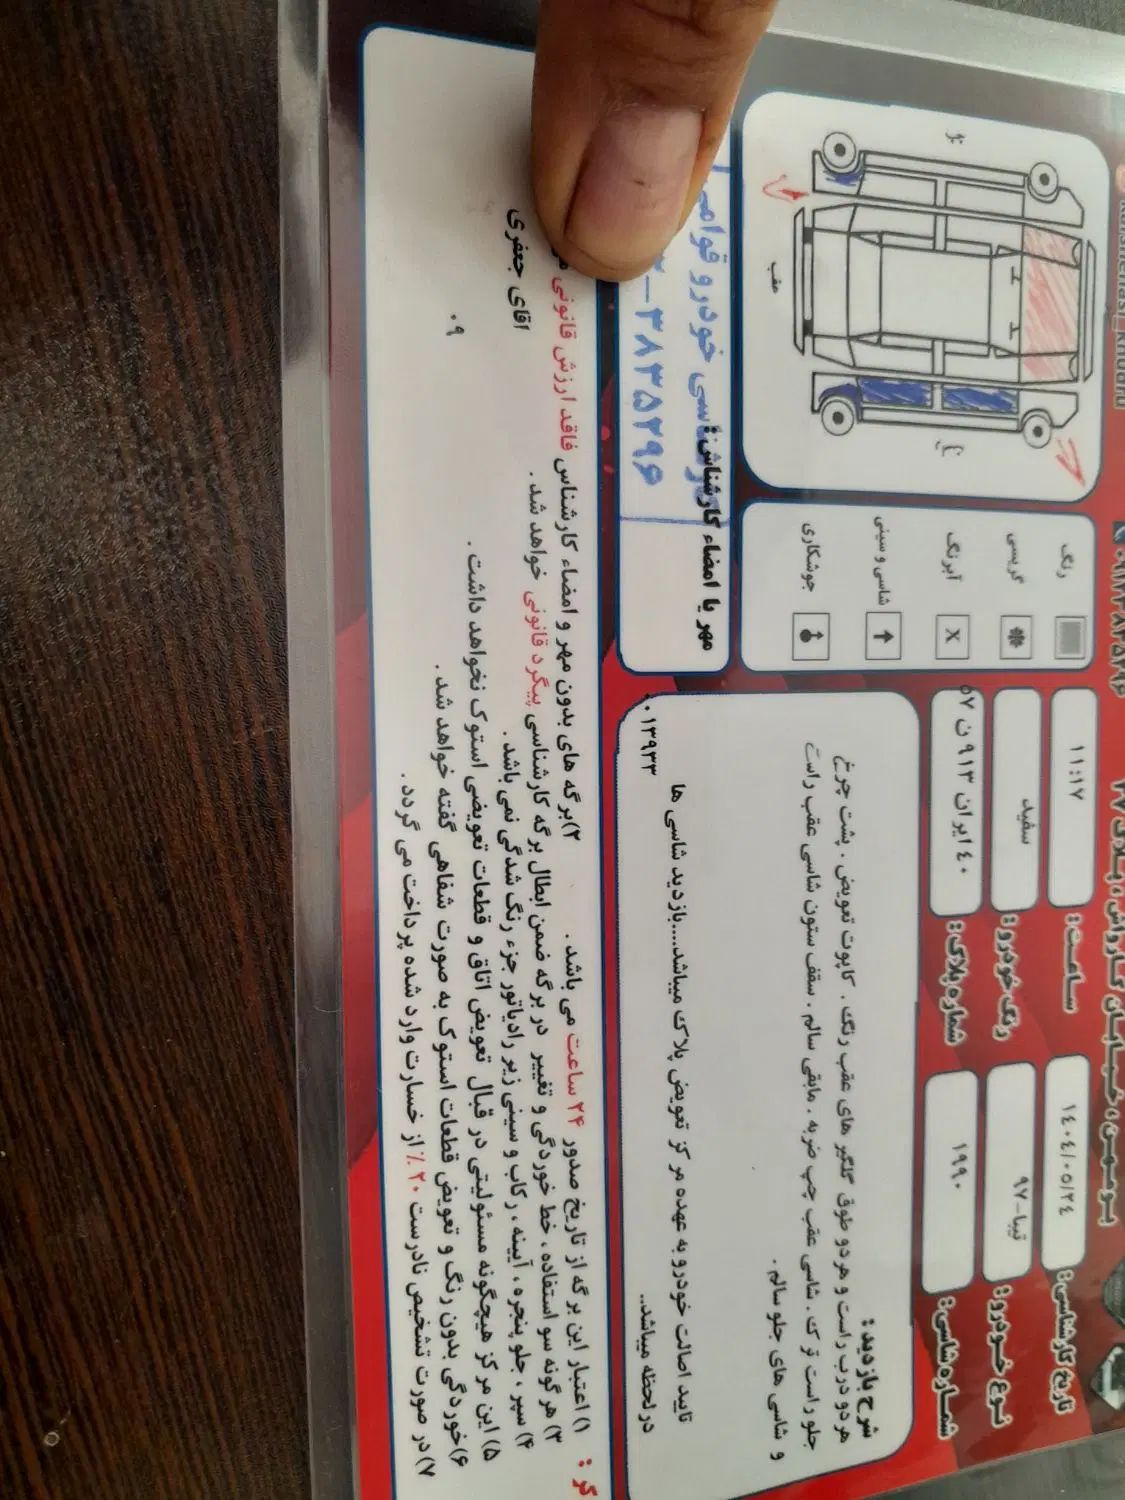 بومهن ، خیابان کارواش ، پلاک ۲۷۷
تاریخ کارشناسی:
۱٤۰٤/۰٥/۲٤
ساعت:
۱۱:۱۷
نوع خودرو:
تیبا-۹۷
رنگ خودرو:
سفید
شماره شاسی:
۱۹۹۰
شماره پلاک:
٤۰ ایران ۹۱۳ ن ٥۷
رنگ
گریسی
آبرنگ
X
شاسی و سینی
جوشکاری
عقب
شرح بازدید :
هر دو درب راست و هر دو طوق گلگیر های عقب رنگ . کاپوت تعویض . پشت چرخ
جلو راست ترک . شاسی عقب چپ ضربه . مابقی سالم . سقف ستون شاسی عقب راست
و شاسی های جلو سالم .
تایید اصالت خودرو به عهده مرکز تعویض پلاک میباشد....بازدید شاسی ها
در لحظه میباشد..
۰۱۳۹۳۳
مهر یا امضاء کارشناس:
خودرو قوامی
۳۸۳۵۲۹۶
۱) اعتبار این برگه از تاریخ صدور ۲۴ ساعت می باشد .
۲)برگه های بدون مهر و امضاء کارشناس فاقد ارزش قانونی
۳) هرگونه سو استفاده ، خط خوردگی و تغییر در برگه ضمن ابطال برگه کارشناسی پیگرد قانونی خواهد شد .
۴) سپر ، جلو پنجره ، آیینه ، رکاب و سینی زیر رادیاتور جزء رنگ شدگی نمی باشد .
۵) این مرکز هیچگونه مسئولیتی در قبال تعویض اتاق و قطعات تعویضی استوک نخواهد داشت .
۶)خوردگی بدون رنگ و تعویض قطعات استوک به صورت شفاهی گفته خواهد شد .
۷)در صورت تشخیص نادرست ۲۰٪ از خسارت وارد شده پرداخت می گردد .
اقای جعفری
۰۹